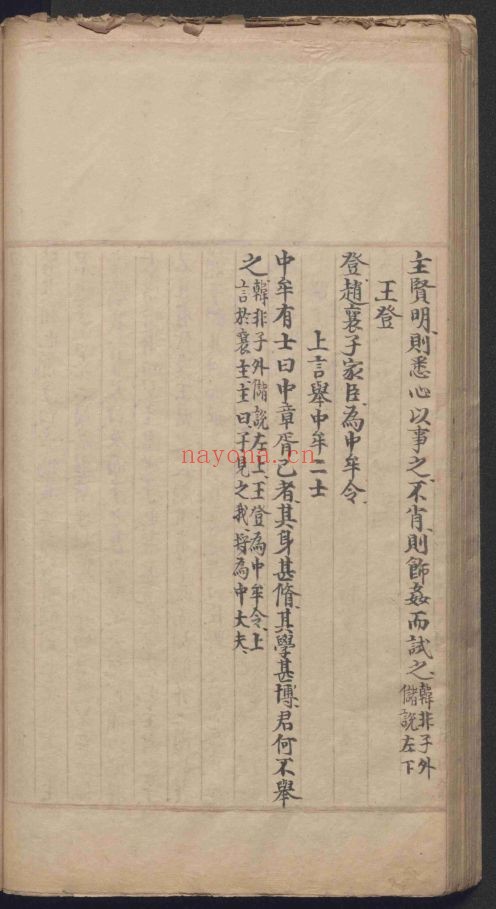 主賢明、則悉心以事之、不肖、則飾姦而試之、韓非子外儲說左下
王登
登、趙襄子家臣、為中牟令、
上言舉中牟二士
中牟有士曰中章胥己者、其身甚脩、其學甚博、君何不舉
之、韓非子外儲說左上、王登為中牟令、上言於襄主、主曰、子見之、我將為中大夫、
nayona.cn